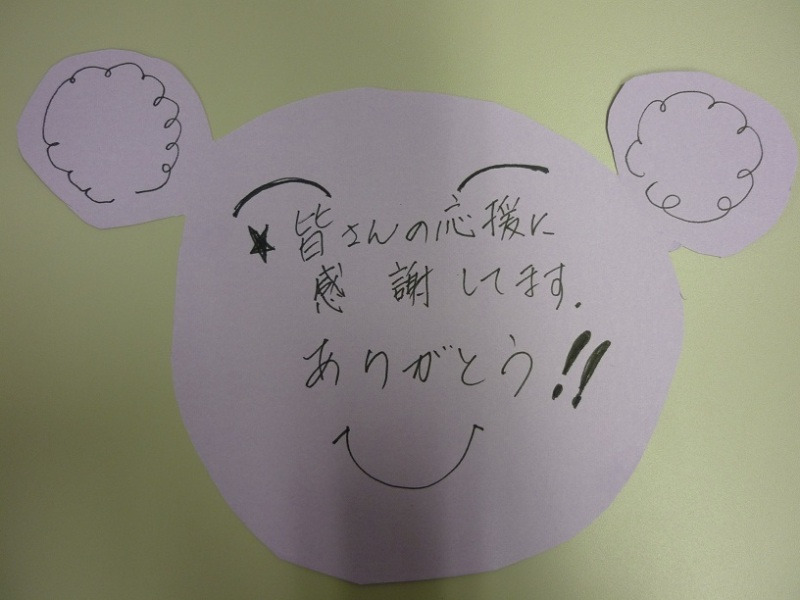 ★皆さんの応援に
感謝してます.
ありがとう!!